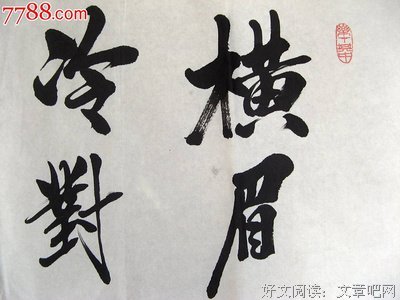 7788.com
橫眉
冷對
好文阅读：文章吧网